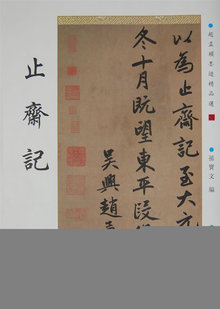 趙孟頫墨迹精品選
孫寶文 編
以為止齋記至大元
冬十月既望東平段
吳興趙
止齋記